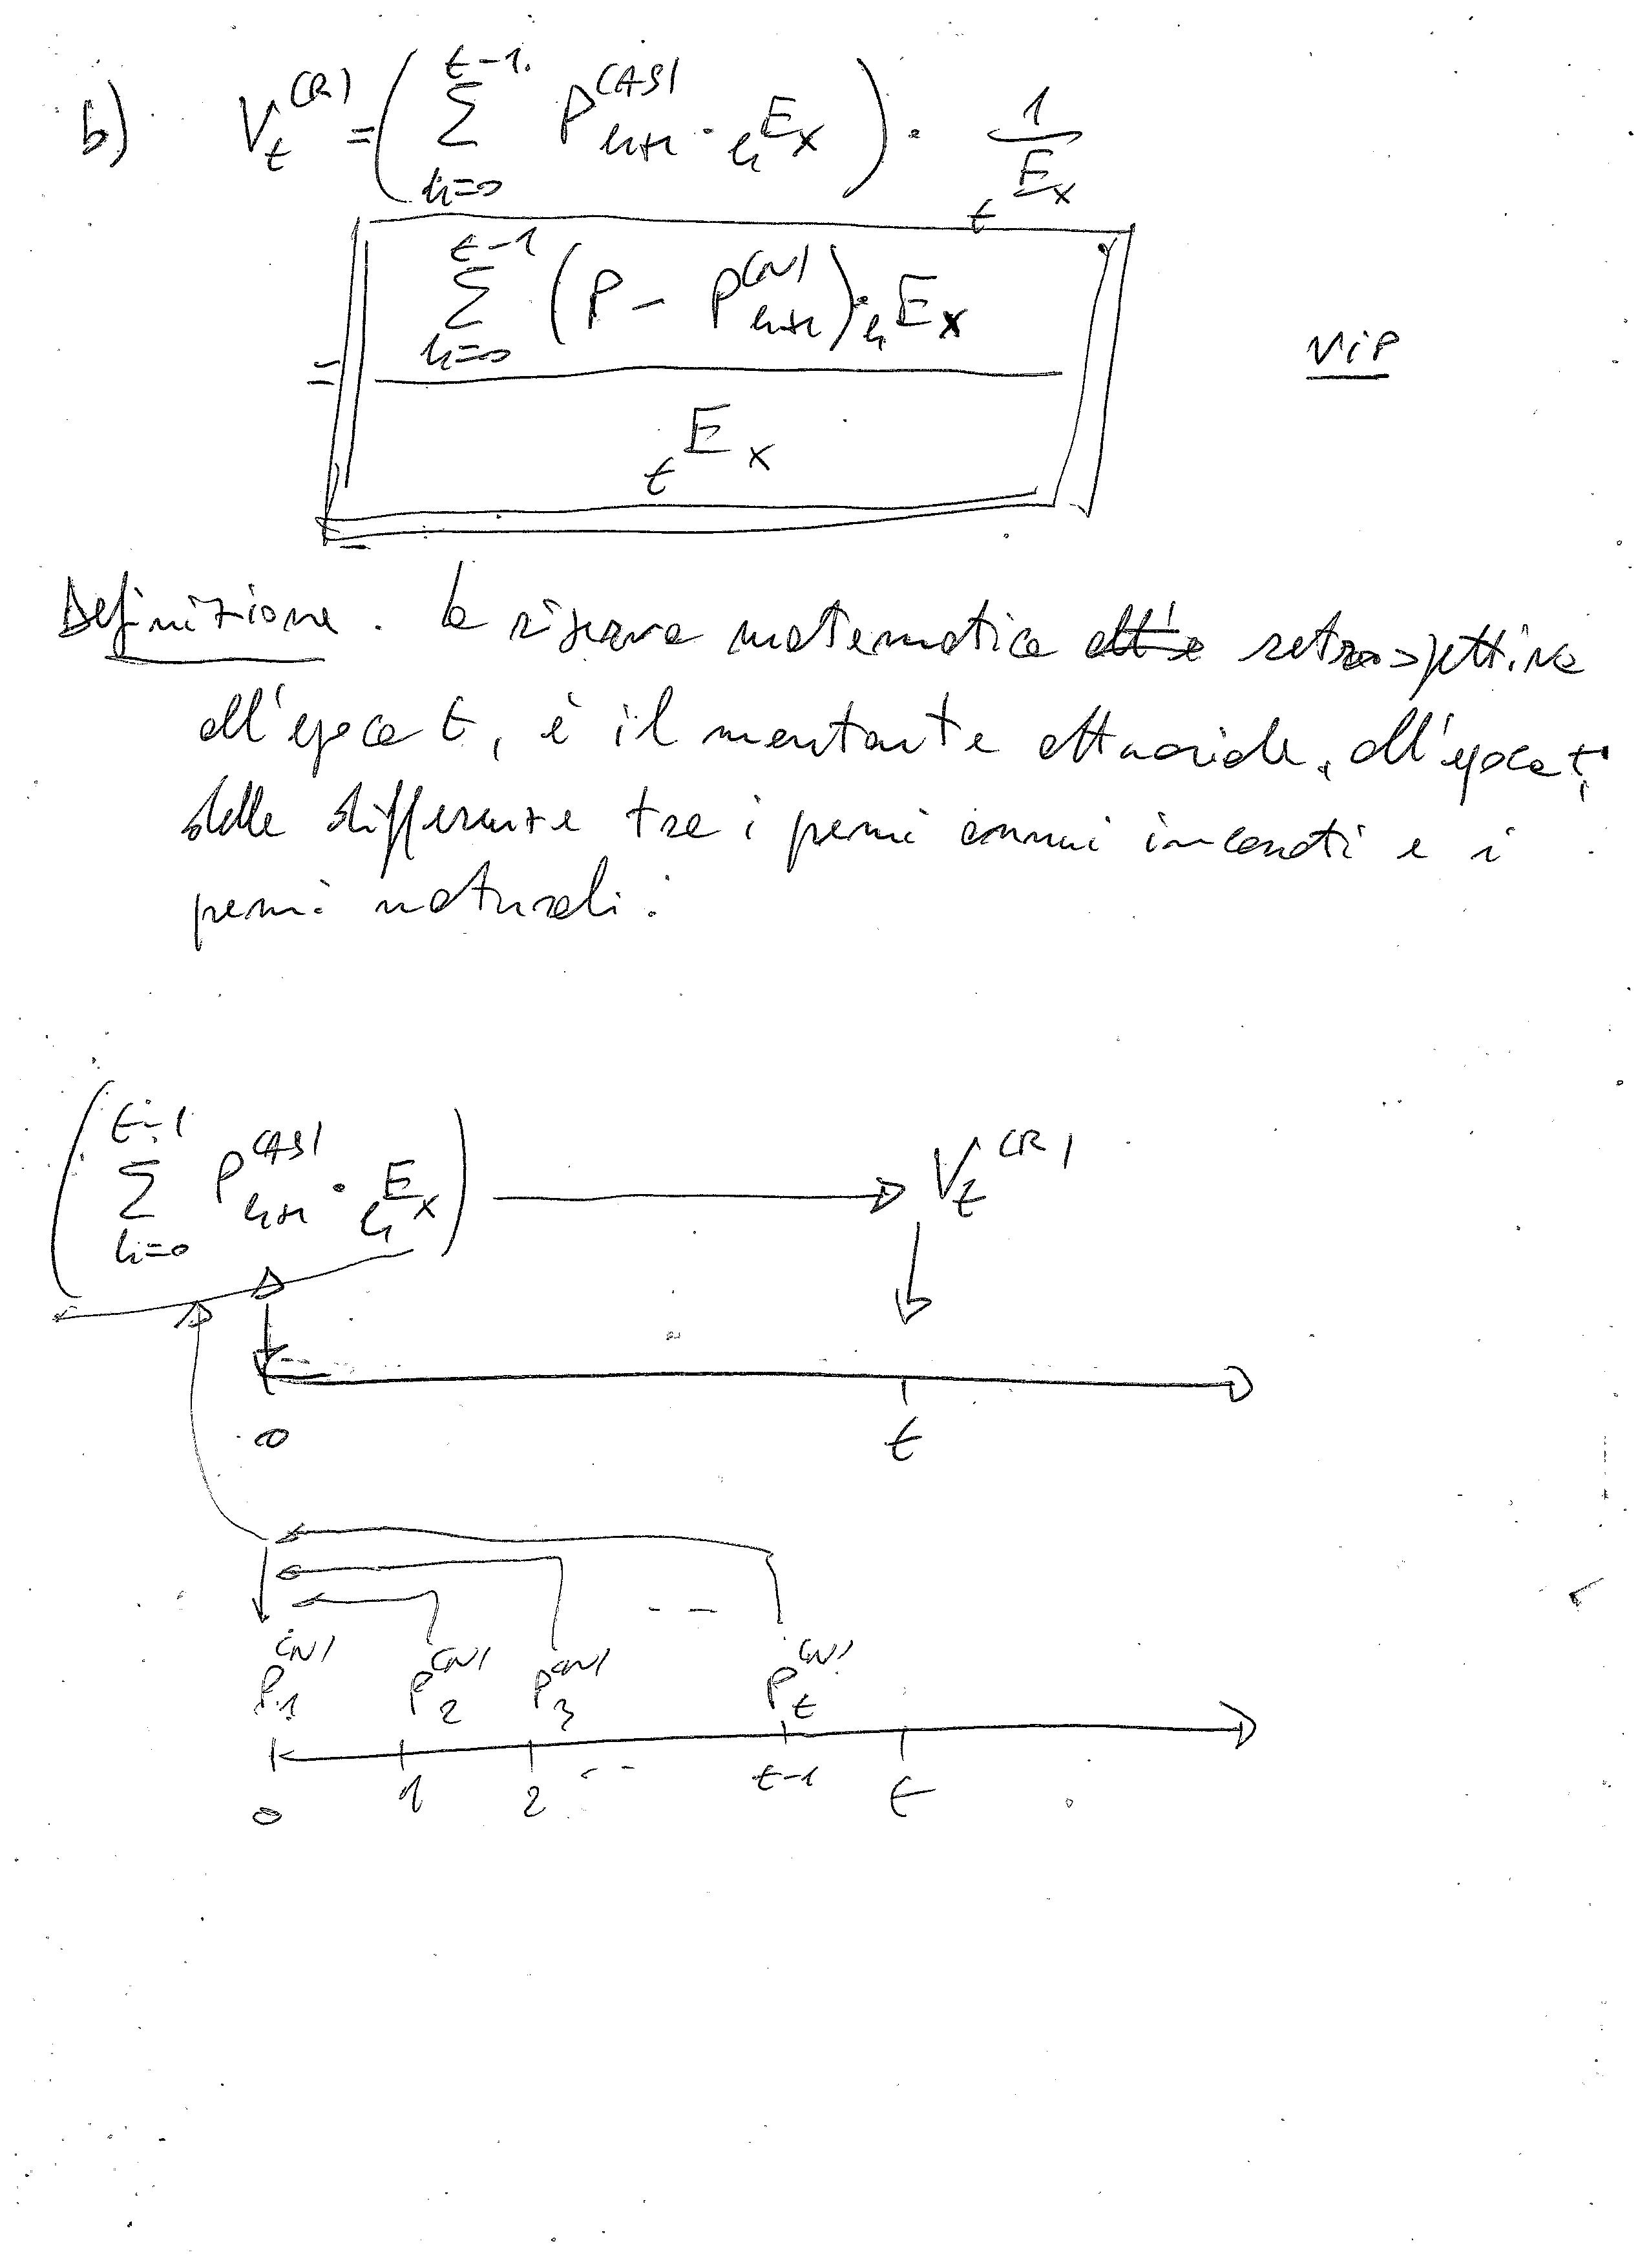 b) V_t^(R) = ( Σ_{h=0}^{t-1} P_{h+1}^(AS) · _hE_x ) · 1 / _tE_x
= Σ_{h=0}^{t-1} (P - P_{h+1}^(N)) · _hE_x / _tE_x VIP
Definizione. la riserva matematica retrospettiva
all'epoca t, è il montante attuariale, all'epoca t,
delle differenze tra i premi annui incassati e i
premi naturali.
( Σ_{h=0}^{t-1} P_{h+1}^(AS) · _hE_x ) → V_t^(R)
0 t
P_1^(N) P_2^(N) P_3^(N) -- P_t^(N)
0 1 2 -- t-1 t